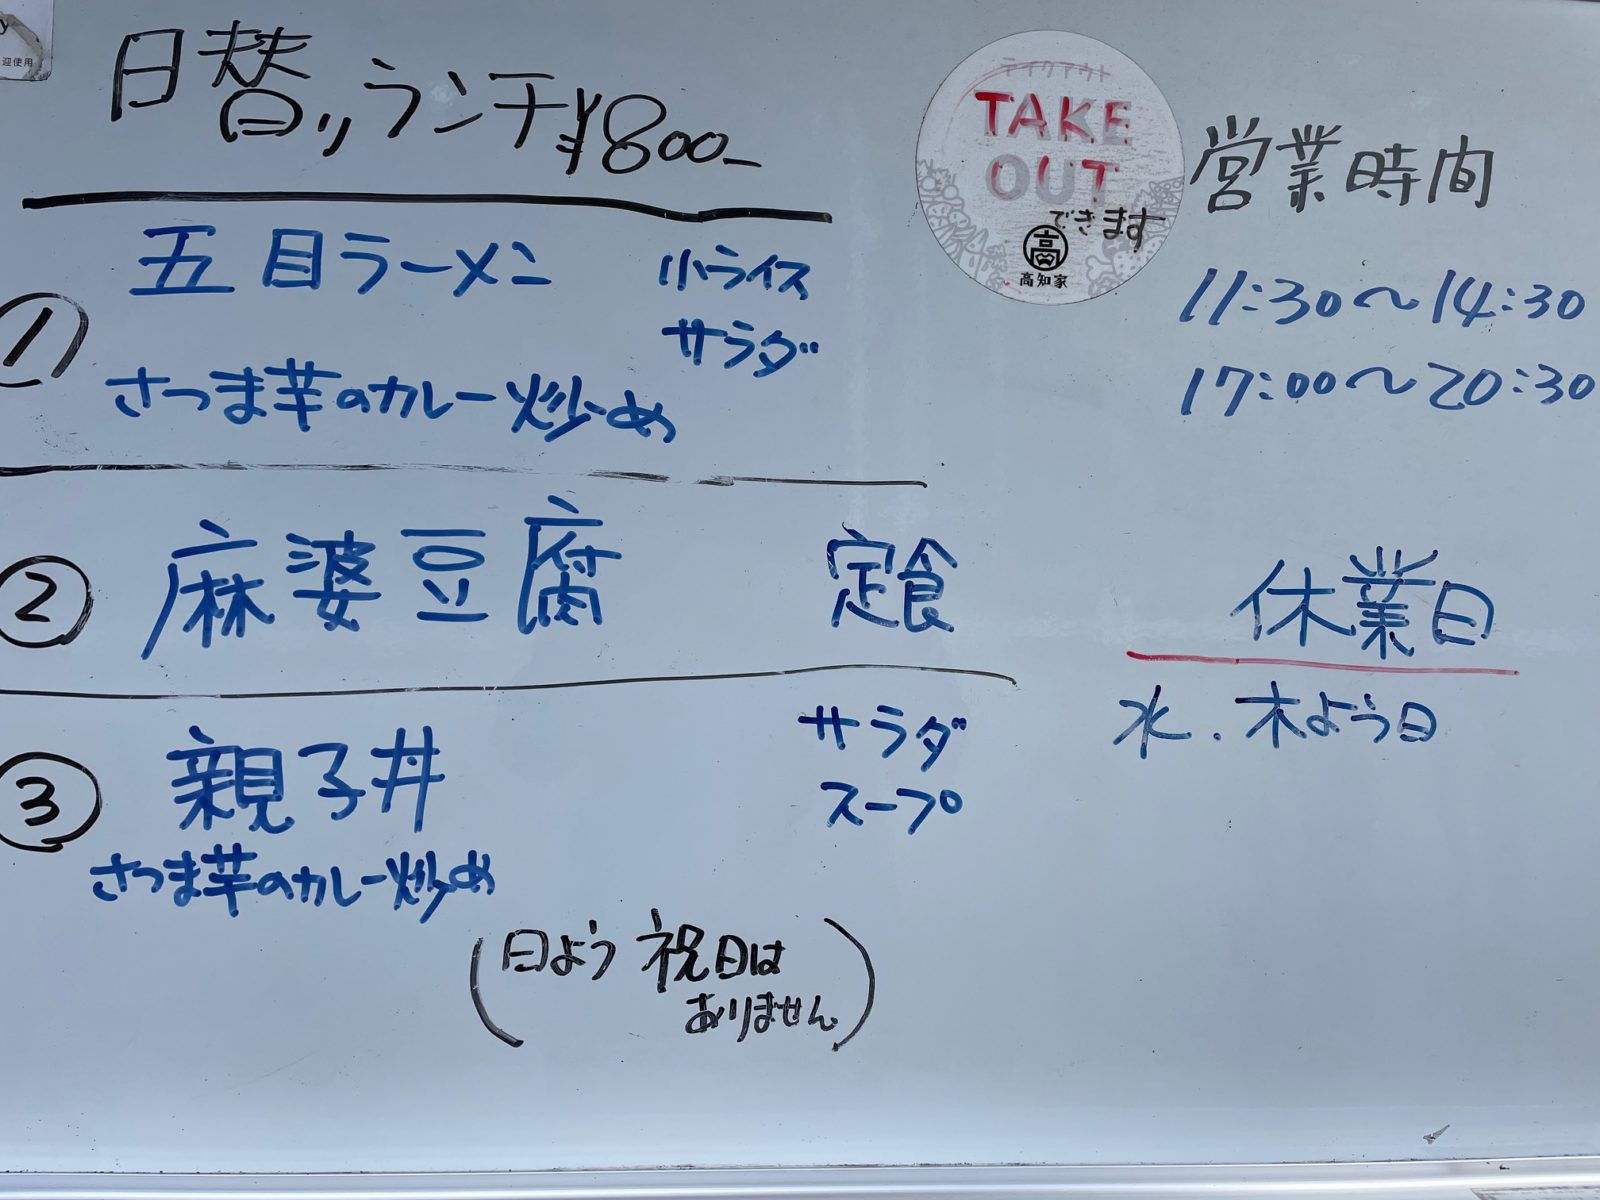 日替りランチ¥800-
① 五目ラーメン 小ライス
サラダ
さつま芋のカレー炒め
② 麻婆豆腐 定食
③ 親子丼 サラダ
スープ
さつま芋のカレー炒め
(日よう 祝日は
ありません)
テイクアウト
TAKE
OUT
できます
高
高知家
営業時間
11:30〜14:30
17:00〜20:30
休業日
水.木よう日
y
迎使用